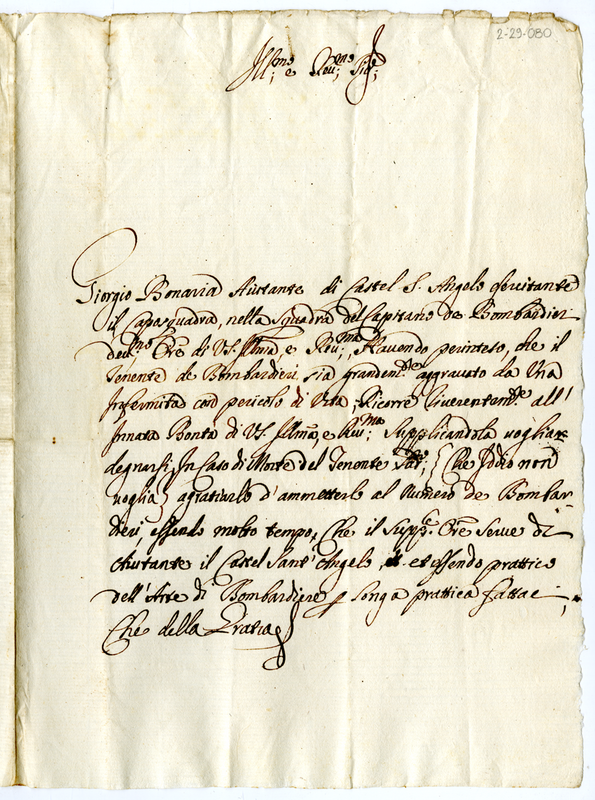 2-29-080
Ill:mo e Reu:mo Sig:
Giorgio Bonavia Aiutante di Castel S. Angelo seruitante
il Caposquadra, nella squadra del Capitano de Bombardieri
dev:mo Ore di VS. Illma, e Reu:ma, Hauendo perinteso, che il
Tenente de Bombardieri, sia grandem:te aggrauato da Una
Infermita con pericolo di Vita, Ricorre riuerentam:te all'
Innata Bonta di VS. Illma, e Reu:ma; Supplicandola uogliare
degnarsi, In Caso di Morte del Tenente { Che Iddio non
uoglia } agratiarlo d'ammetterlo al Numero de Bombar
dieri, essendo molto tempo, Che il Supp:e Ore Serue di
Aiutante il Castel Sant' Angelo, et essendo prattico
dell' Arte di Bombardiere longa prattica fattae;
Che della Gratia